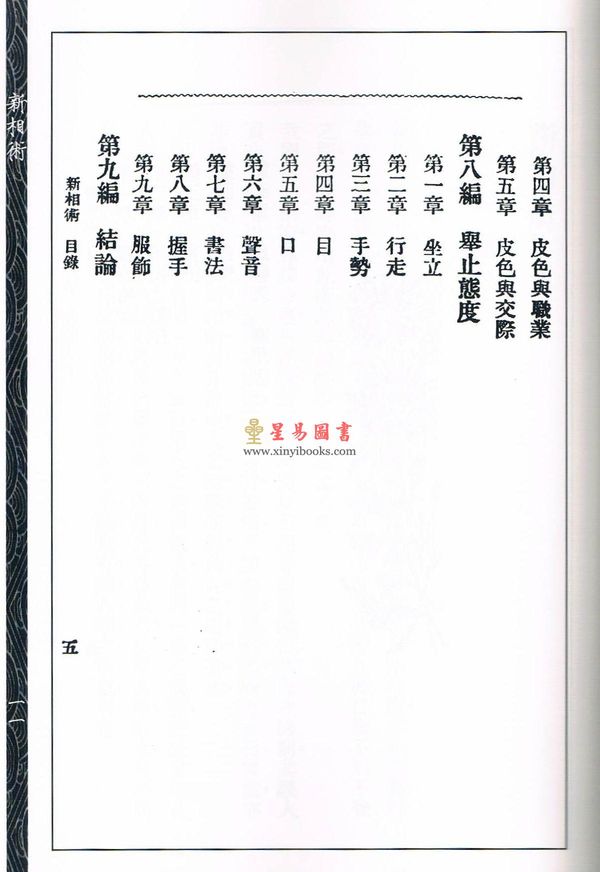 第四章　皮色與職業
第五章　皮色與交際
第八編　舉止態度
第一章　坐立
第二章　行走
第三章　手勢
第四章　目
第五章　口
第六章　聲音
第七章　書法
第八章　握手
第九章　服飾
第九編　結論
新相術　目錄
五
新相術
一一
星易圖書
www.xinyibooks.com